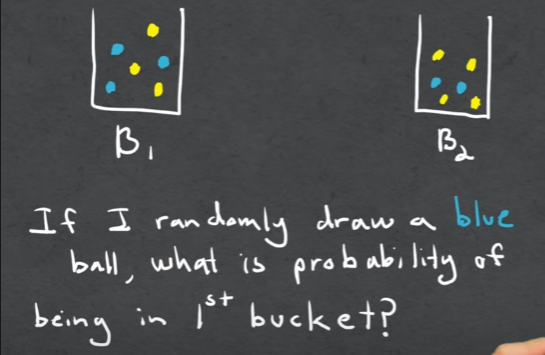 B1 B2
If I randomly draw a blue
ball, what is probability of
being in 1st bucket?